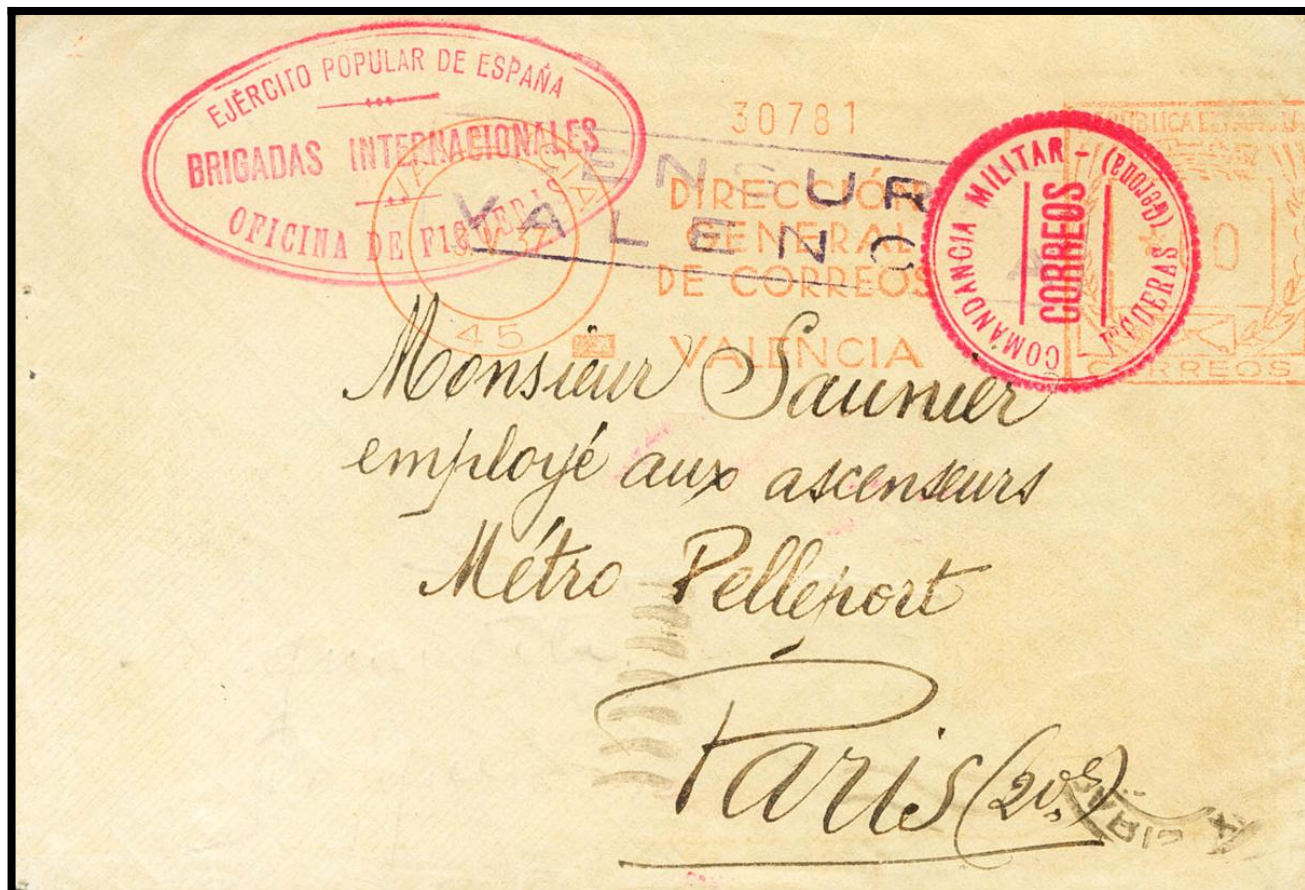 EJÉRCITO POPULAR DE ESPAÑA
BRIGADAS INTERNACIONALES
OFICINA DE
30781
CENSUR
VALENC
DIRECCIÓN
GENERAL
DE CORREOS
VALENCIA
45
COMANDANCIA MILITAR - (Gerona)
CORREOS
CORREOS
Monsieur Saunier
employé aux ascenseurs
Métro Pelleport
Paris (20e)